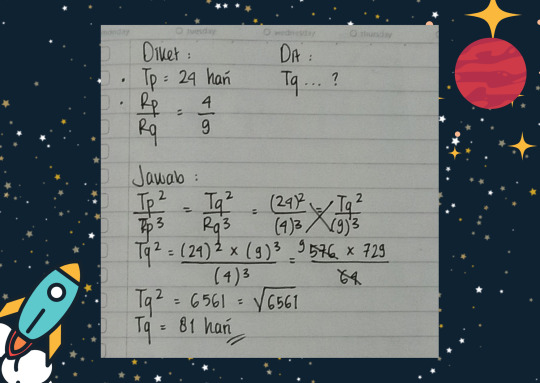 tuesday wednesday thursday
Diket : Dit :
• Tp = 24 hari Tq ... ?
• Rp/Rq = 4/9
Jawab :
Tp²/Tp³ = Tq²/Rq³ = (24)²/(4)³ = Tq²/(9)³
Tq² = (24)² x (9)³/(4)³ = 9 576 x 729/64
Tq² = 6561 = √6561
Tq = 81 hari